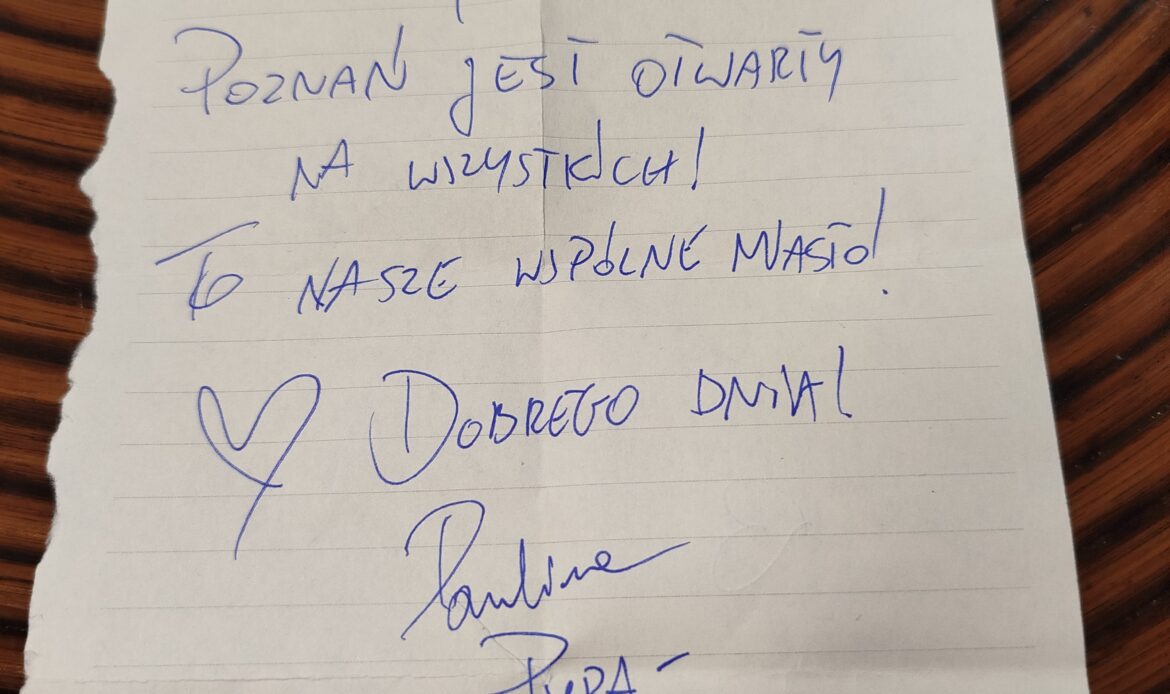 POZNAŃ JEST OTWARTY
NA WSZYSTKICH!
TO NASZE WSPÓLNE MIASTO!
DOBREGO DNIA!
Paulina